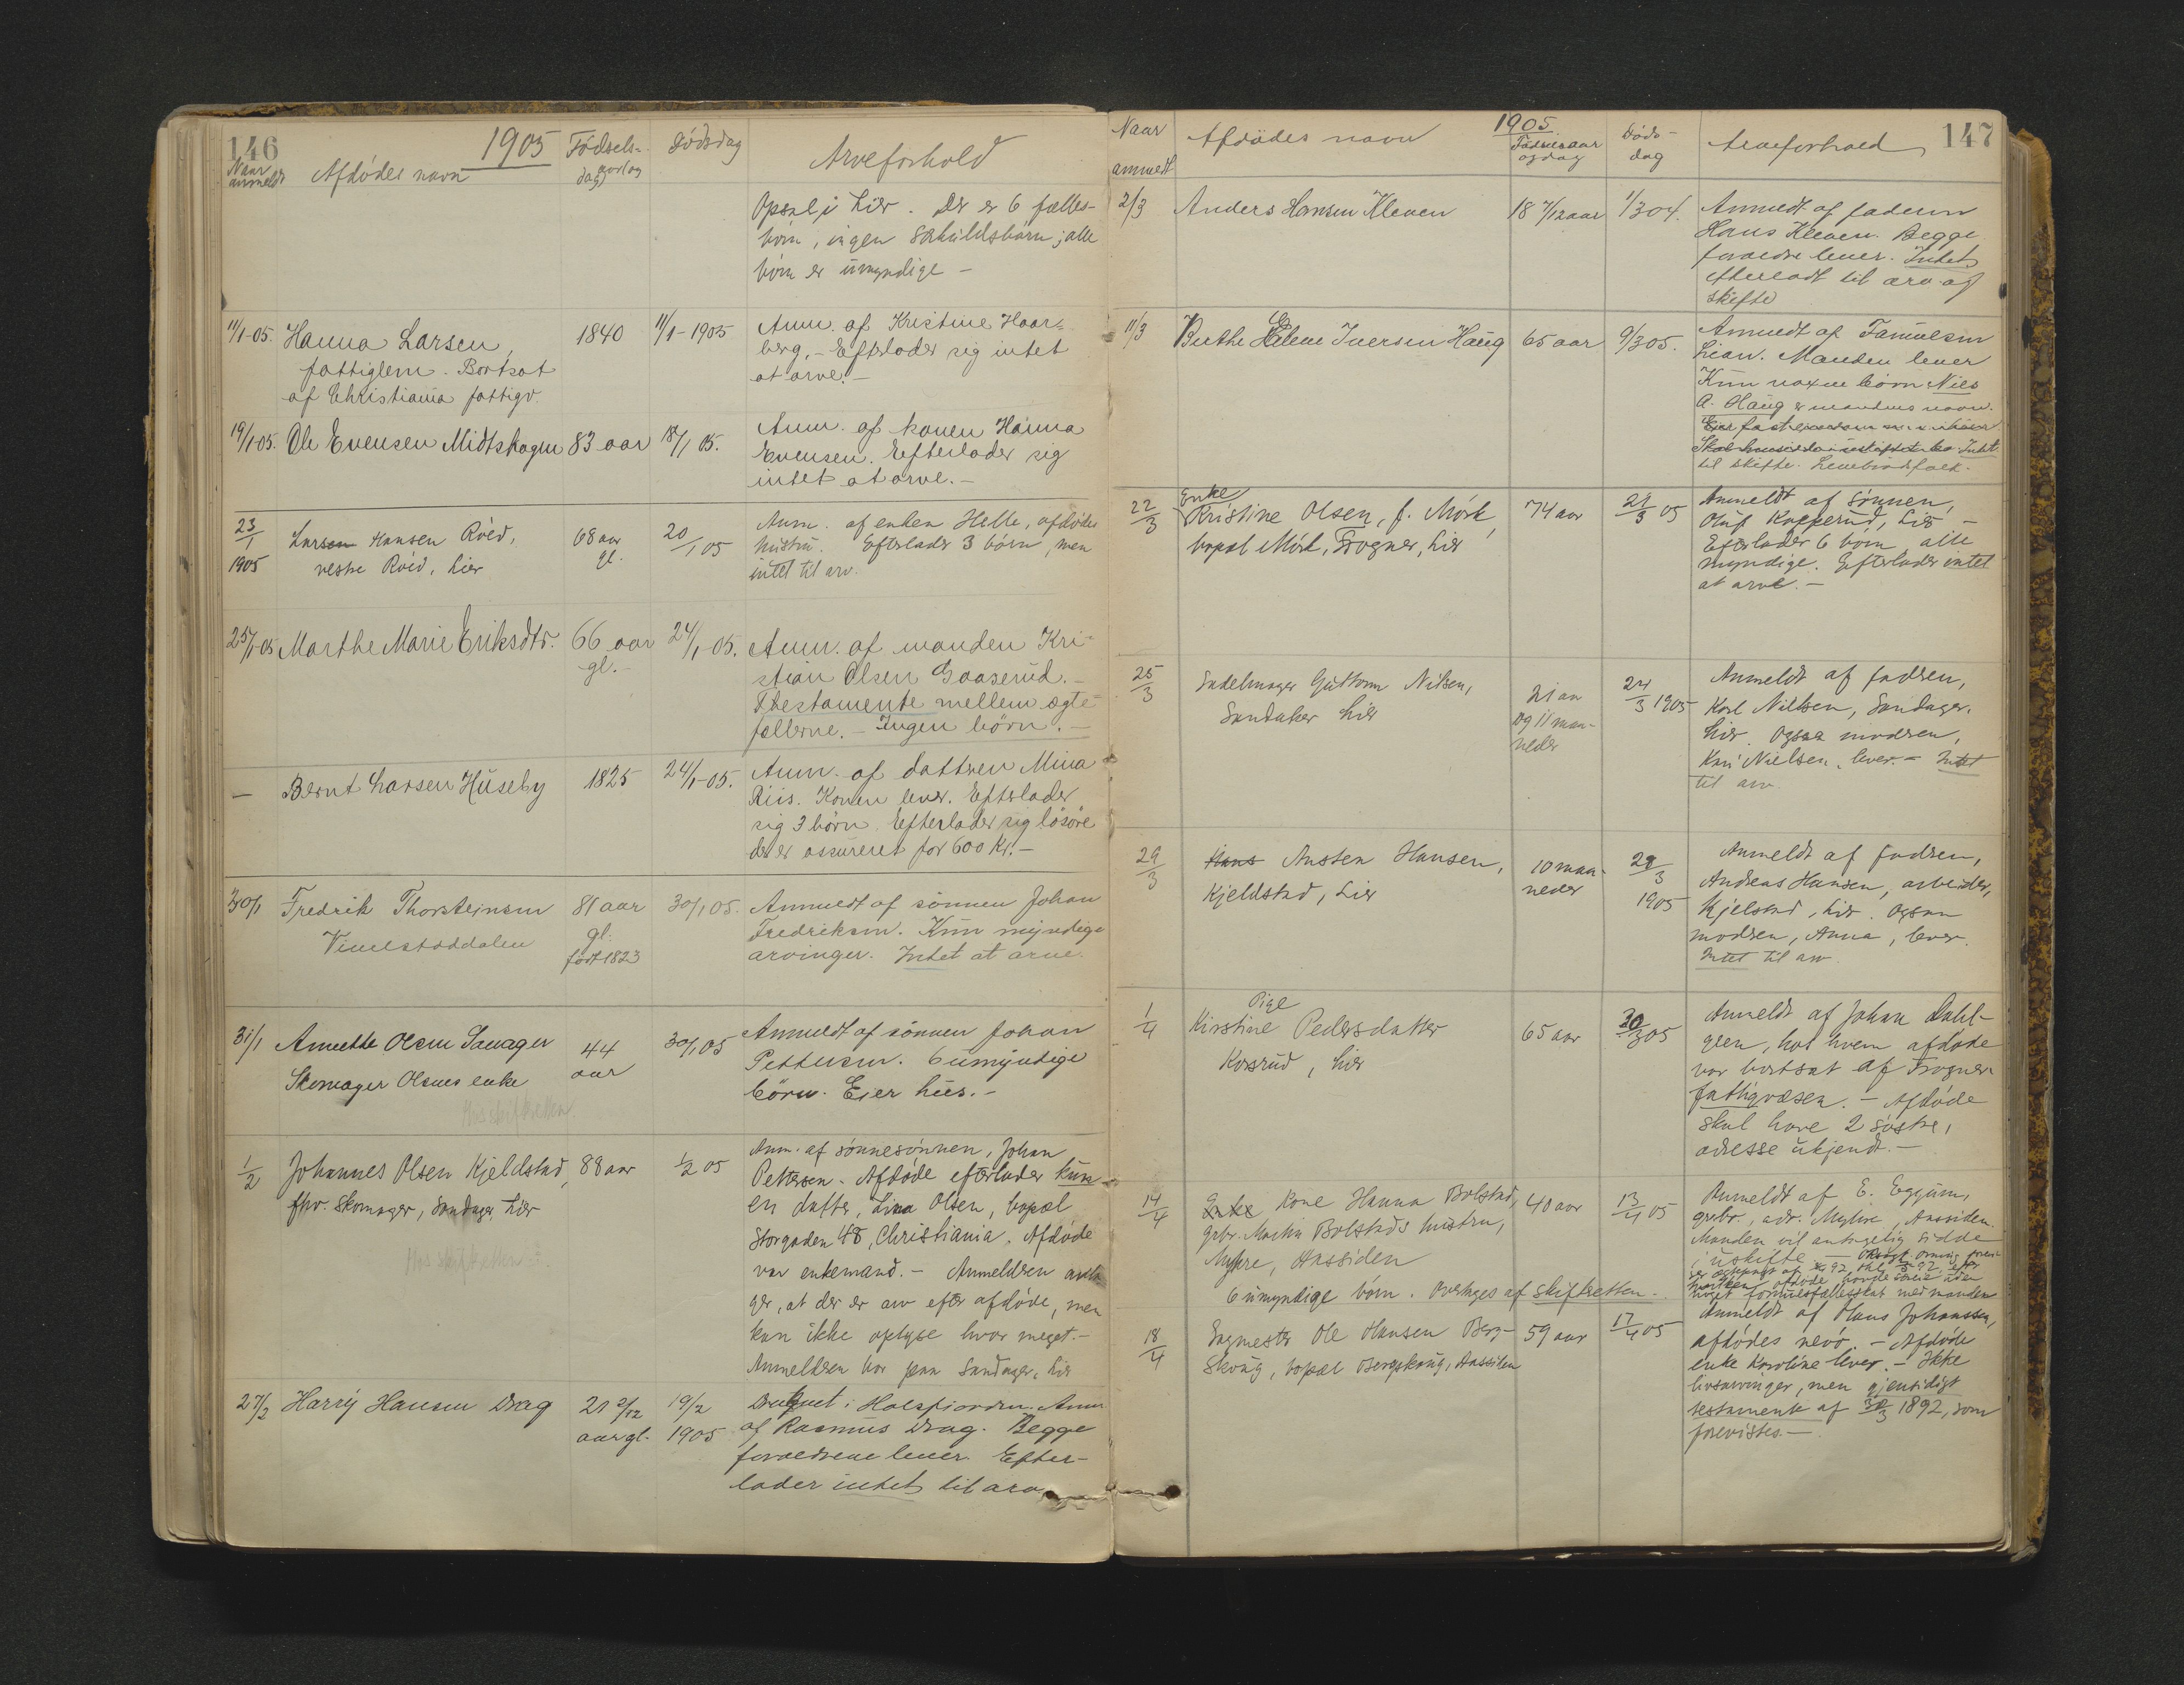 146
1905
Naar anmeldt
Afdødes navn
Fødsels-
dag
Dødsdag
Arveforhold
Opsal i Lier. Der er 6 fælles-
børn, ingen særkuldsbørn; alle
børn er umyndige -
11/1-05.
Hanna Larsen,
fattiglem. Bortsat
af Christiania fattigv.
1840
11/1-1905
Anm. af Kristine Haar-
berg. - Efterlader sig intet
at arve. -
19/1-05.
Ole Evensen Midtskogen
83 aar
18/1 05.
Anm. af konen Hanna
Evensen. Efterlader sig
intet at arve. -
23/1
1905
Larsen Hansen Röed,
vestre Röed, Lier
68 aar
gl.
20/1 05
Anm. af enken Helle, afdødes
hustru. Efterlader 3 börn, men
intet til arv.
25/1-05
Marthe Marie Eriksdtr.
66 aar
gl.-
24/1-05.
Anm. af manden Kri-
stian Olsen Gaaserud. -
Thestamente mellem ægte-
fællerne. - Ingen börn. -
-
Bernt Larsen Huseby
1825
24/1-05.
Anm. af dattren Mina
Riis. Konen lever. Efterlader
sig 3 börn. Efterlader sig lösöre
der er assureret for 600 Kr. -
30/1
Fredrik Thorsteinsen
81 aar
gl.
født 1823
30/1 05.
Anmeldt af sönnen Johan
Fredriksen. Kun myndige
arvinger. Intet at arve.
31/1
Annethe Olsen
Skomager Olsens enke
44
aar
30/1 05
Anmeldt af sönnen Johan
Pettersen. 6 umyndige
börn. Eier hus. -
1/2
Johannes Olsen Kjeldstad,
fhv. skomager, Sandager, Lier
88 aar
1/2 05
Anm. af sönnesönnen, Johan
Pettersen. Afdöde efterlader kun
en datter, Lina Olsen, bopæl
Storgaden 48, Christiania. Afdöde
var enkemand. - Anmelderen anta
ger, at der er arv efter afdöde, men
kan ikke oplyse hvor meget. -
Anmelderen bor paa Sandager, Lier
27/2
Harry Hansen Drag
21 2/12
aar gl.
19/2
1905
Druknet i Holsfjorden. Anm
af Rasmus Drag. Begge
forældrene lever. Efter-
lader intet til arv
147
Naar
anmeldt
Afdödes navn
1905
Fødselsaar
og dag
Döds-
dag
Arveforhold
2/3
Anders Hansen Kleven
18 7/12 aar
1/3 04.
Anmeldt af faderen
Hans Kleven. Begge
forældre lever. Intet
efterladt til arv og
skifte
11/3
Berthe Helene Iversen Haug
65 aar
9/3 05.
Anmeldt af Samuelsen
Lian. Manden lever
Kun voxne börn Nils
A. Haug er mandens navn.
Intet
til skifte.
22/3
Enke
Kristine Olsen, f. Mörk,
bopæl Mörk, Frogner, Lier
74 aar
21/3 05
Anmeldt af sönnen,
Oluf Kopperud, Lier -
Efterlader 6 börn alle
myndige. Efterlader intet
at arve. -
25/3
Sadelmager Guttorm Nilsen,
Sandaker Lier
21 aar
og 11 maa-
neder
24/3 1905
Anmeldt af fadren,
Karl Nilsen, Sandager,
Lier. Ogsaa modren,
Kari Nielsen, lever. - Intet
til arv.
29/3
Hans Austen Hansen,
Kjeldstad, Lier
10 maa-
neder
29/3
1905
Anmeldt af fadren,
Andreas Hansen, arbeider,
Kjelstad, Lier. Ogsaa
modren, Anna, lever.
Intet til arv.
1/4
Pige
Kirstine Pedersdatter
Korsrud, Lier
65 aar
30/3 05
Anmeldt af Johan Dahl-
green, hos hvem afdøde
var bortsat af Frogner
fattigvæsen. - Afdöde
skal have 2 söstre,
adresse ukjendt. -
14/4
Enke Kone Hanna Bolstad,
grbr. Martin Bolstads hustru,
Myhre, Aassiden
6 umyndige börn. Overtages af skifteretten. -
40 aar
13/4 05
Anmeldt af E. Eggum,
grbr., adr. Myhre, Aassiden.
Manden vil antagelig sidde
i uskifte -
18/4
Sagmester Ole Hansen Berg-
skoug, bopæl Bergskoug, Aassiden
59 aar
17/4 05
Anmeldt af Hans Johanssen,
afdödes nevö. - Afdöde
enke Karoline lever. - Ikke
livsarvinger, men gjensidigt
testamente af 30/3 1892, som
forevistes. -